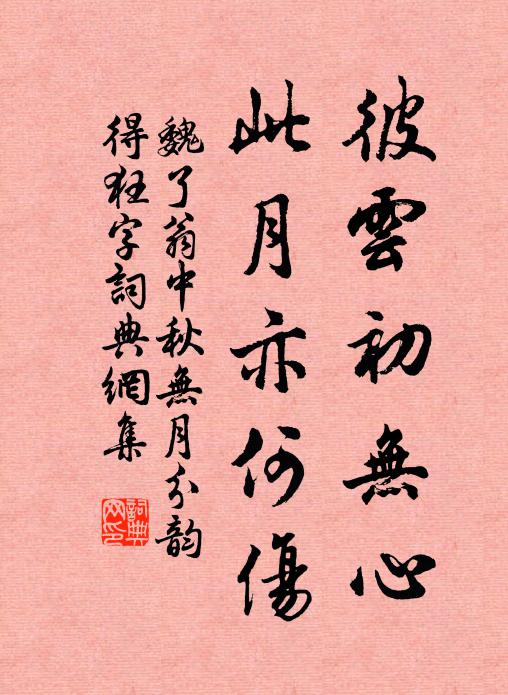 彼雲初無心
此月亦何傷
魏了翁中秋無月分韵
得狂字詞典網集
詞典网印